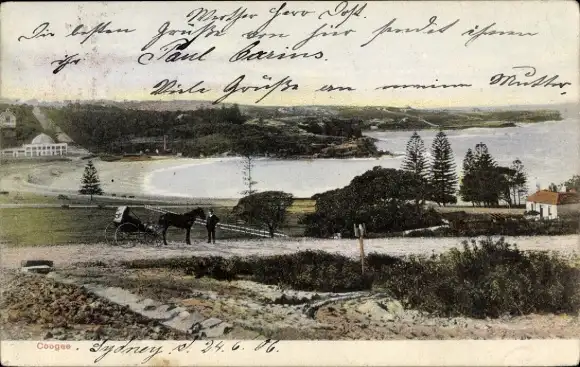 Werther Herr Dost.
Die besten Grüße von hier sendet ihnen
ihr Paul Carius.
Viele Grüße an meine Mutter
Coogee. Sydney d. 24.6.06.